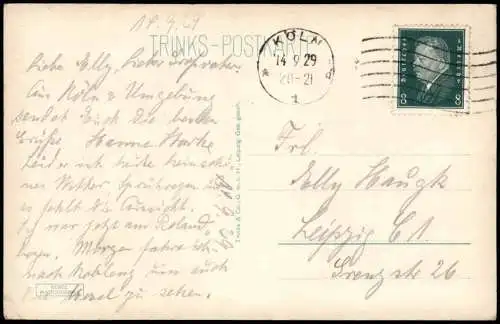 14.9.29
TRINKS-POSTKARTE
KÖLN
14.9.29
20-21
1
Deutsches Reich
8 8
Liebe Elly, lieber Grossvater,
Aus Köln u Umgebung
sendet Euch die besten
Grüße Hanne
Leider ist heute kein schö-
nes Wetter Sprühregen und
es fehlt die Aussicht.
war jetzt am Roland-
bogen. Morgen fahre ich
nach Koblenz um auch
die Mosel zu sehen.
Trinks & Co., G. m. b. H., Leipzig. Ges. gesch.
Frl.
Elly Haugk
Leipzig C1
Grenzstr 26